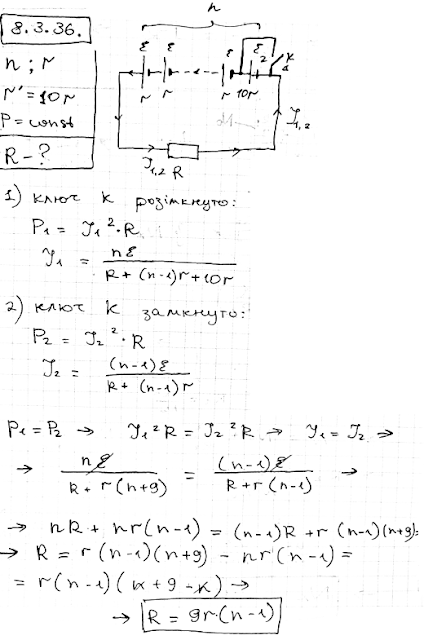 8.3.36.
n ; r
r' = 10r
P = const
R - ?
n
ε ε ε ε₂ K
r r r 10r
J₁,₂ R
J₁,₂
1) ключ K розімкнуто:
P₁ = J₁² · R
J₁ = nε / (R + (n-1)r + 10r)
2) ключ K замкнуто:
P₂ = J₂² · R
J₂ = (n-1)ε / (R + (n-1)r)
P₁ = P₂ → J₁²R = J₂²R → J₁ = J₂ ⇒
→ nε / (R + r(n+9)) = (n-1)ε / (R + r(n-1)) →
→ nR + nr(n-1) = (n-1)R + r(n-1)(n+9):
→ R = r(n-1)(n+9) - nr(n-1) =
= r(n-1)(n+9-n) →
→ R = 9r·(n-1)